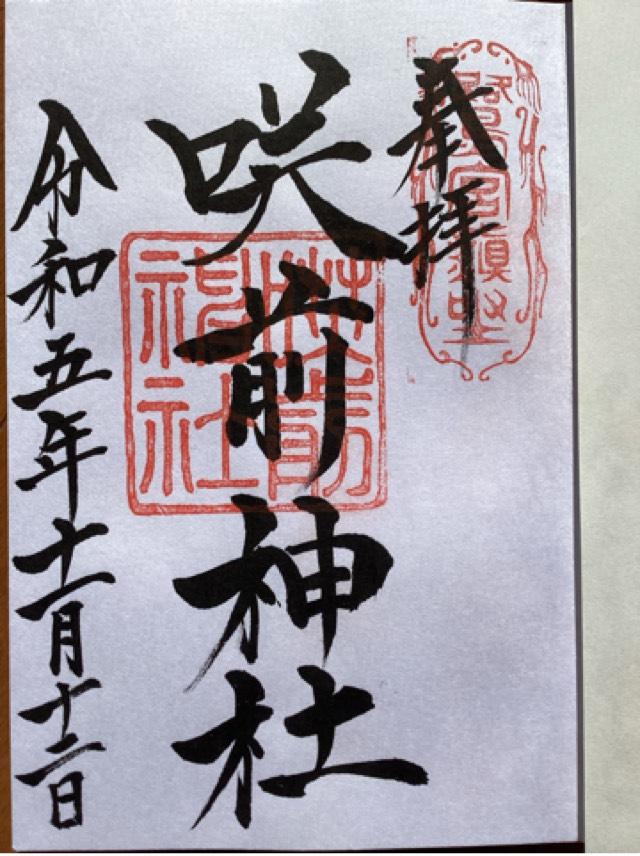 奉拝
咲前神社
咲前神社
令和五年十一月十二日